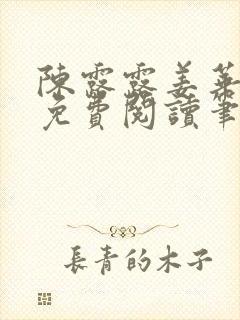 陳露露姜
免費閱讀筆
長青的木子